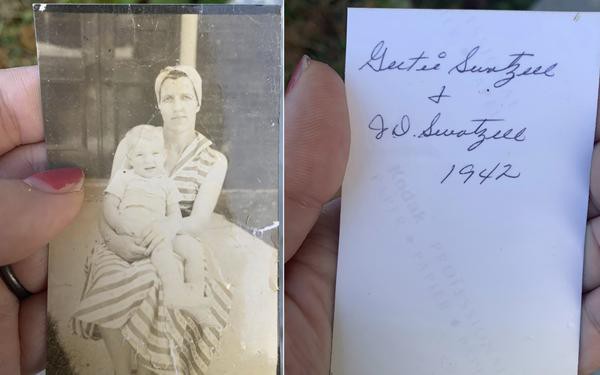 Gertie Swatzell
&
J D. Swatzell
1942
Kodak PROFESSIONAL
PAPER ◆ PAPIER ◆